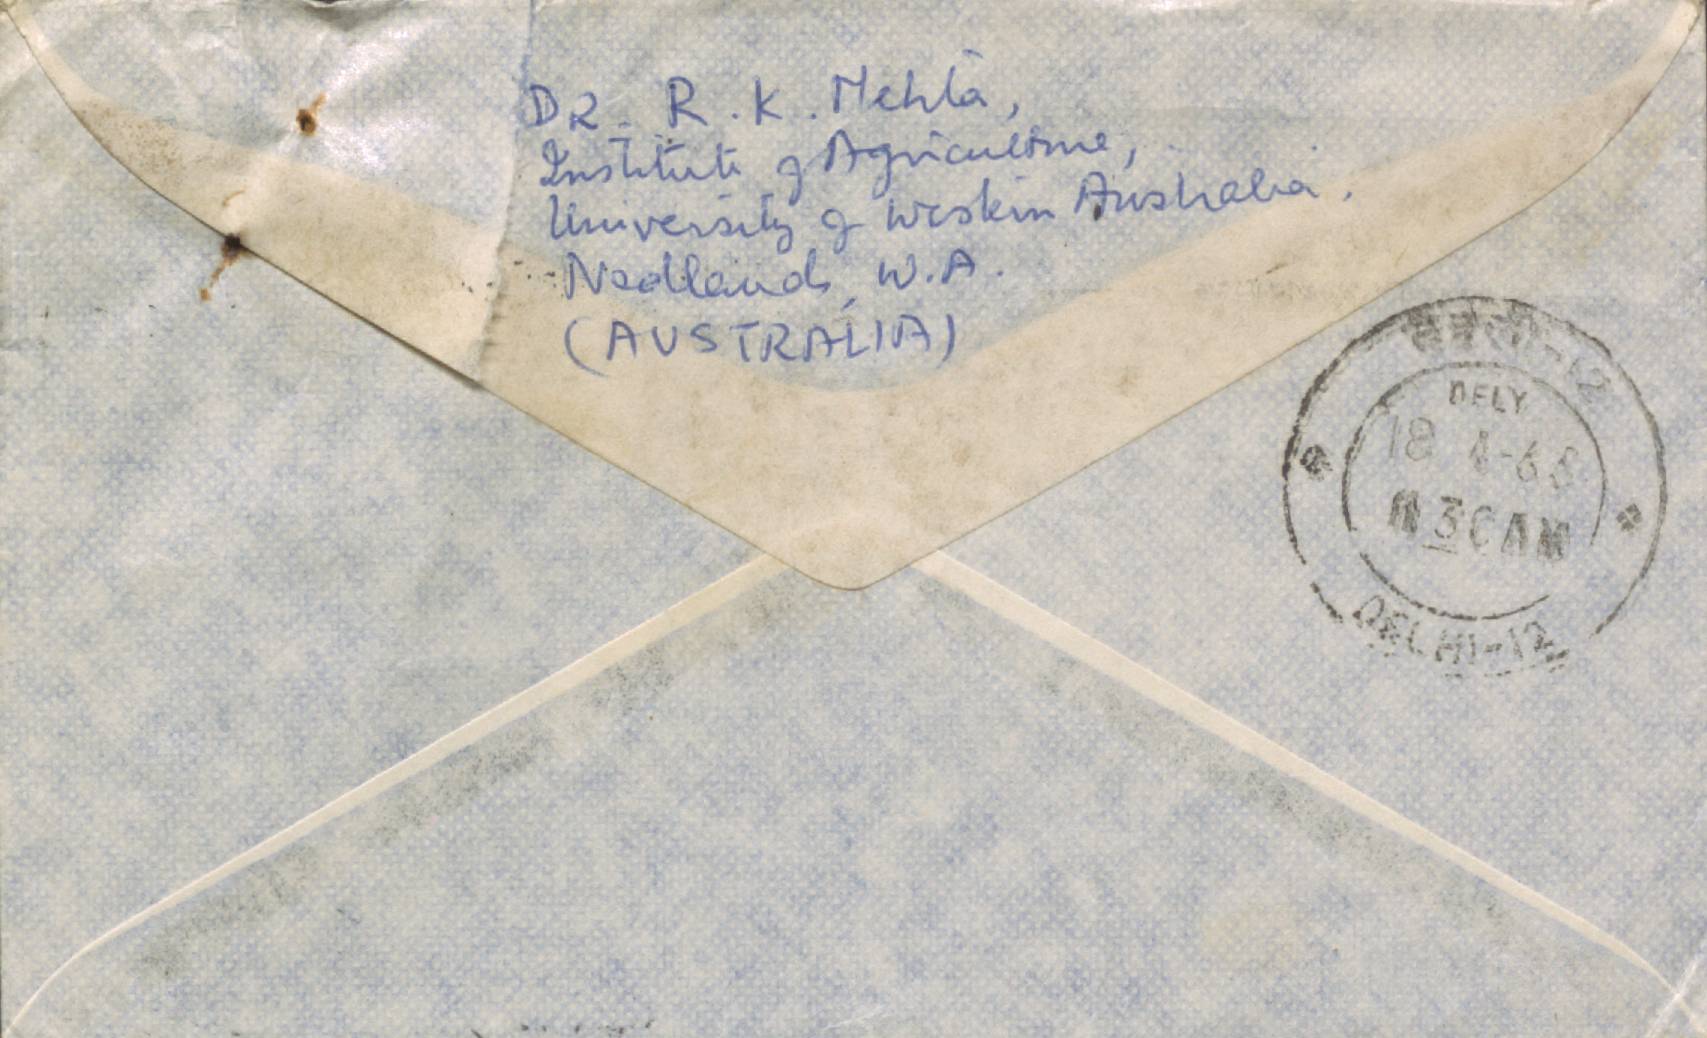 DR. R. K. Mehta,
Institute of Agriculture,
University of Western Australia.
Nedlands, W.A.
(AUSTRALIA)
DELY
18 4-68
30AM
DELHI-12